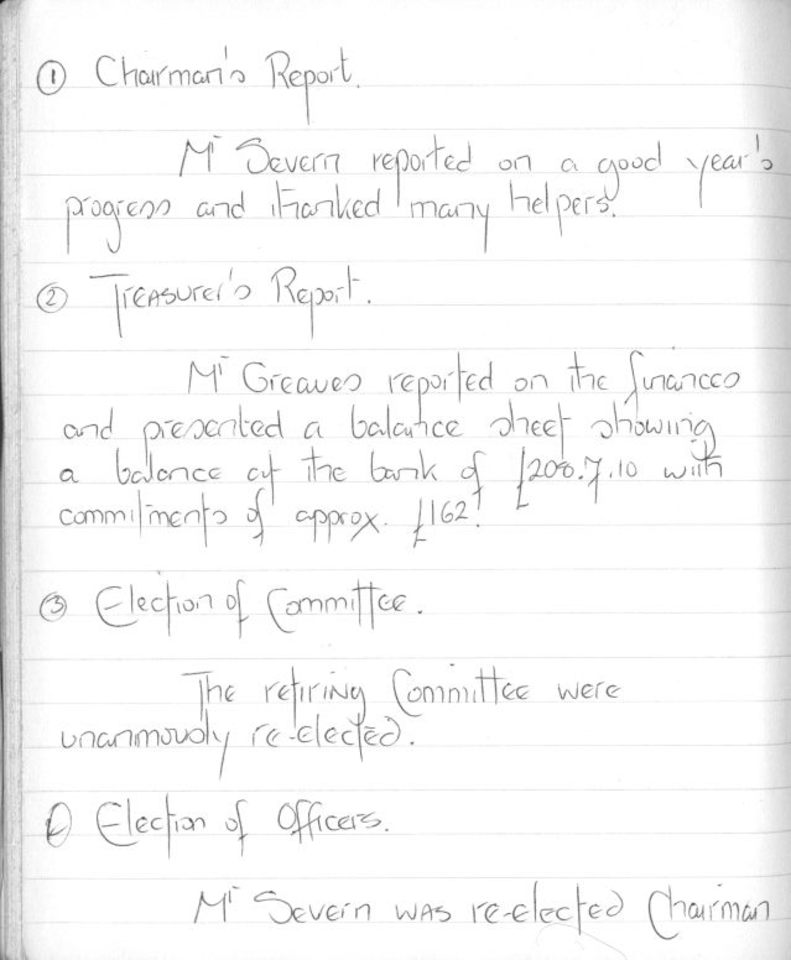 ① Chairman's Report.
Mr Severn reported on a good year's
progress and thanked many helpers.
② Treasurer's Report.
Mr Greaves reported on the finances
and presented a balance sheet showing
a balance at the bank of £208.7.10 with
commitments of approx. £162!
③ Election of Committee.
The retiring Committee were
unanmously re-elected.
Election of Officers.
Mr Severn was re-elected Chairman